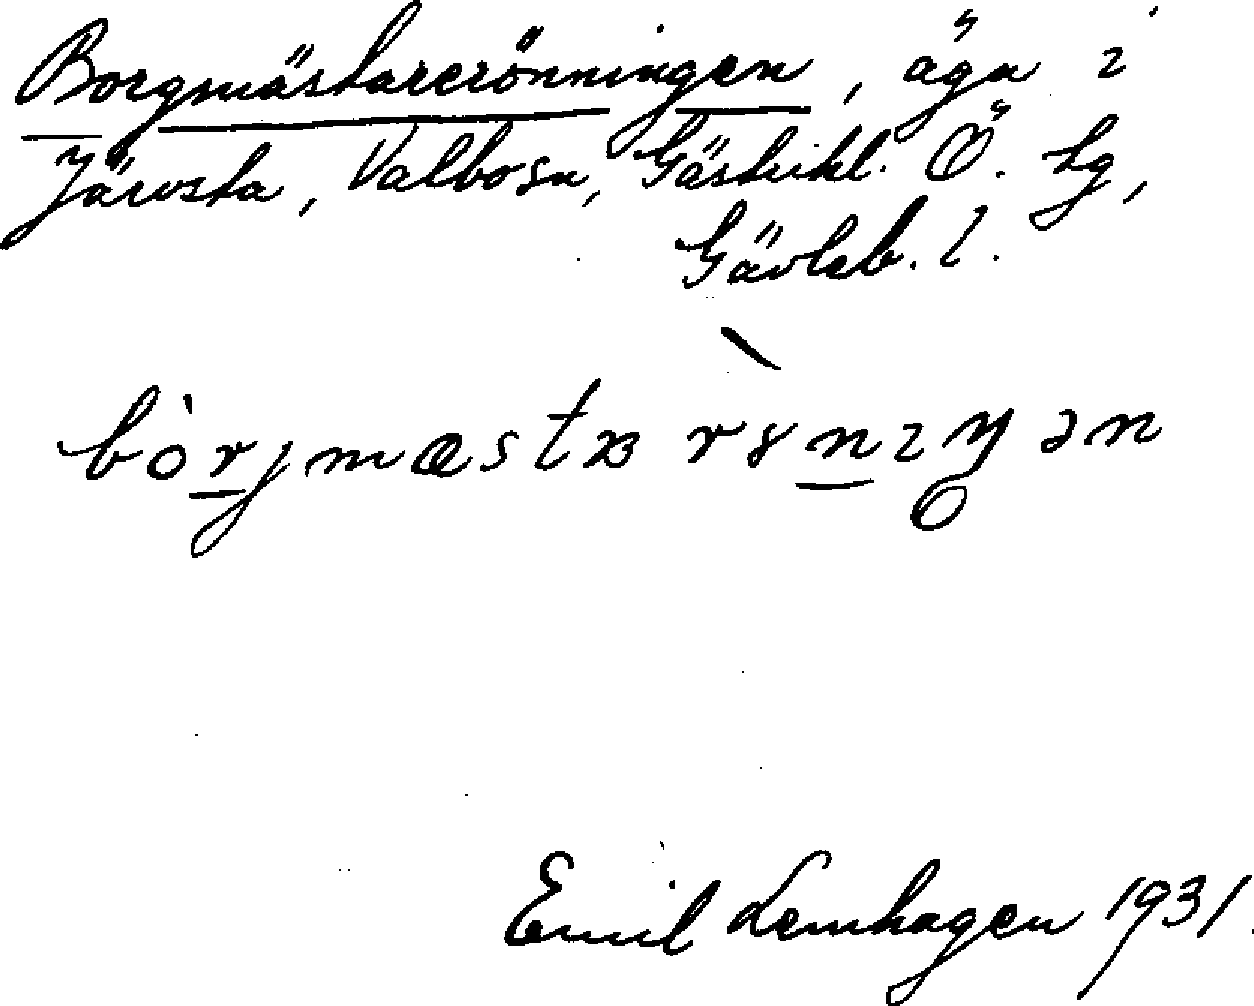 Borgmästarerönningen, äga i
Järvsta, Valbosn, Gästrikl. Ö. Lg,
Gävleb. l.
bòrjmæstɐ rɤ̀nıŋən
Emil Lemhagen 1931.